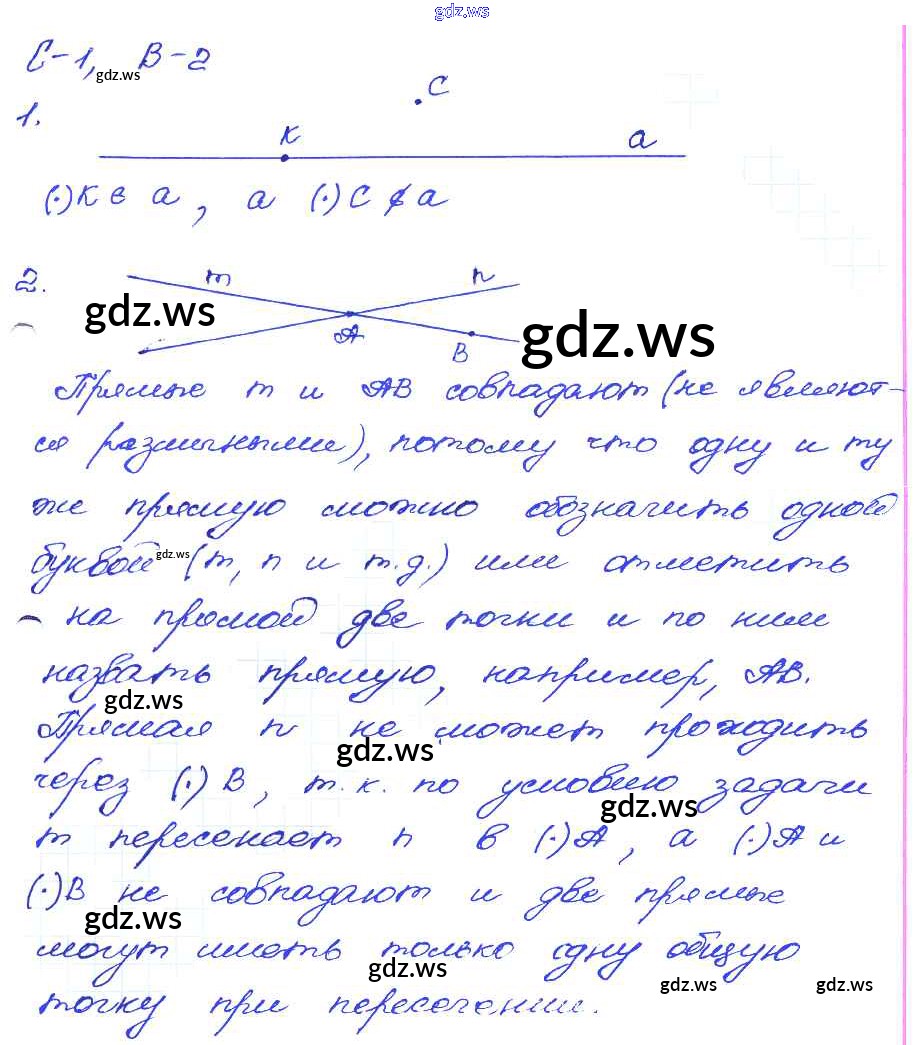 gdz.ws
С-1, В-2
gdz.ws
1.
С
К
а
(·)К ∈ а, а (·)С ∉ а
2.
m
n
gdz.ws
А
В
gdz.ws
Прямые m и АВ совпадают (не являют-
ся различными), потому что одну и ту
же прямую можно обозначить одной
буквой (m, n и т.д.) или отметить
gdz.ws
на прямой две точки и по ним
назвать прямую, например, АВ.
gdz.ws
Прямая n не может проходить
gdz.ws
через (·) В, т.к. по условию задачи
gdz.ws
m пересекает n в (·)А, а (·)А и
(·)В не совпадают и две прямые
gdz.ws
могут иметь только одну общую
gdz.ws
gdz.ws
gdz.ws
точку при пересечении.